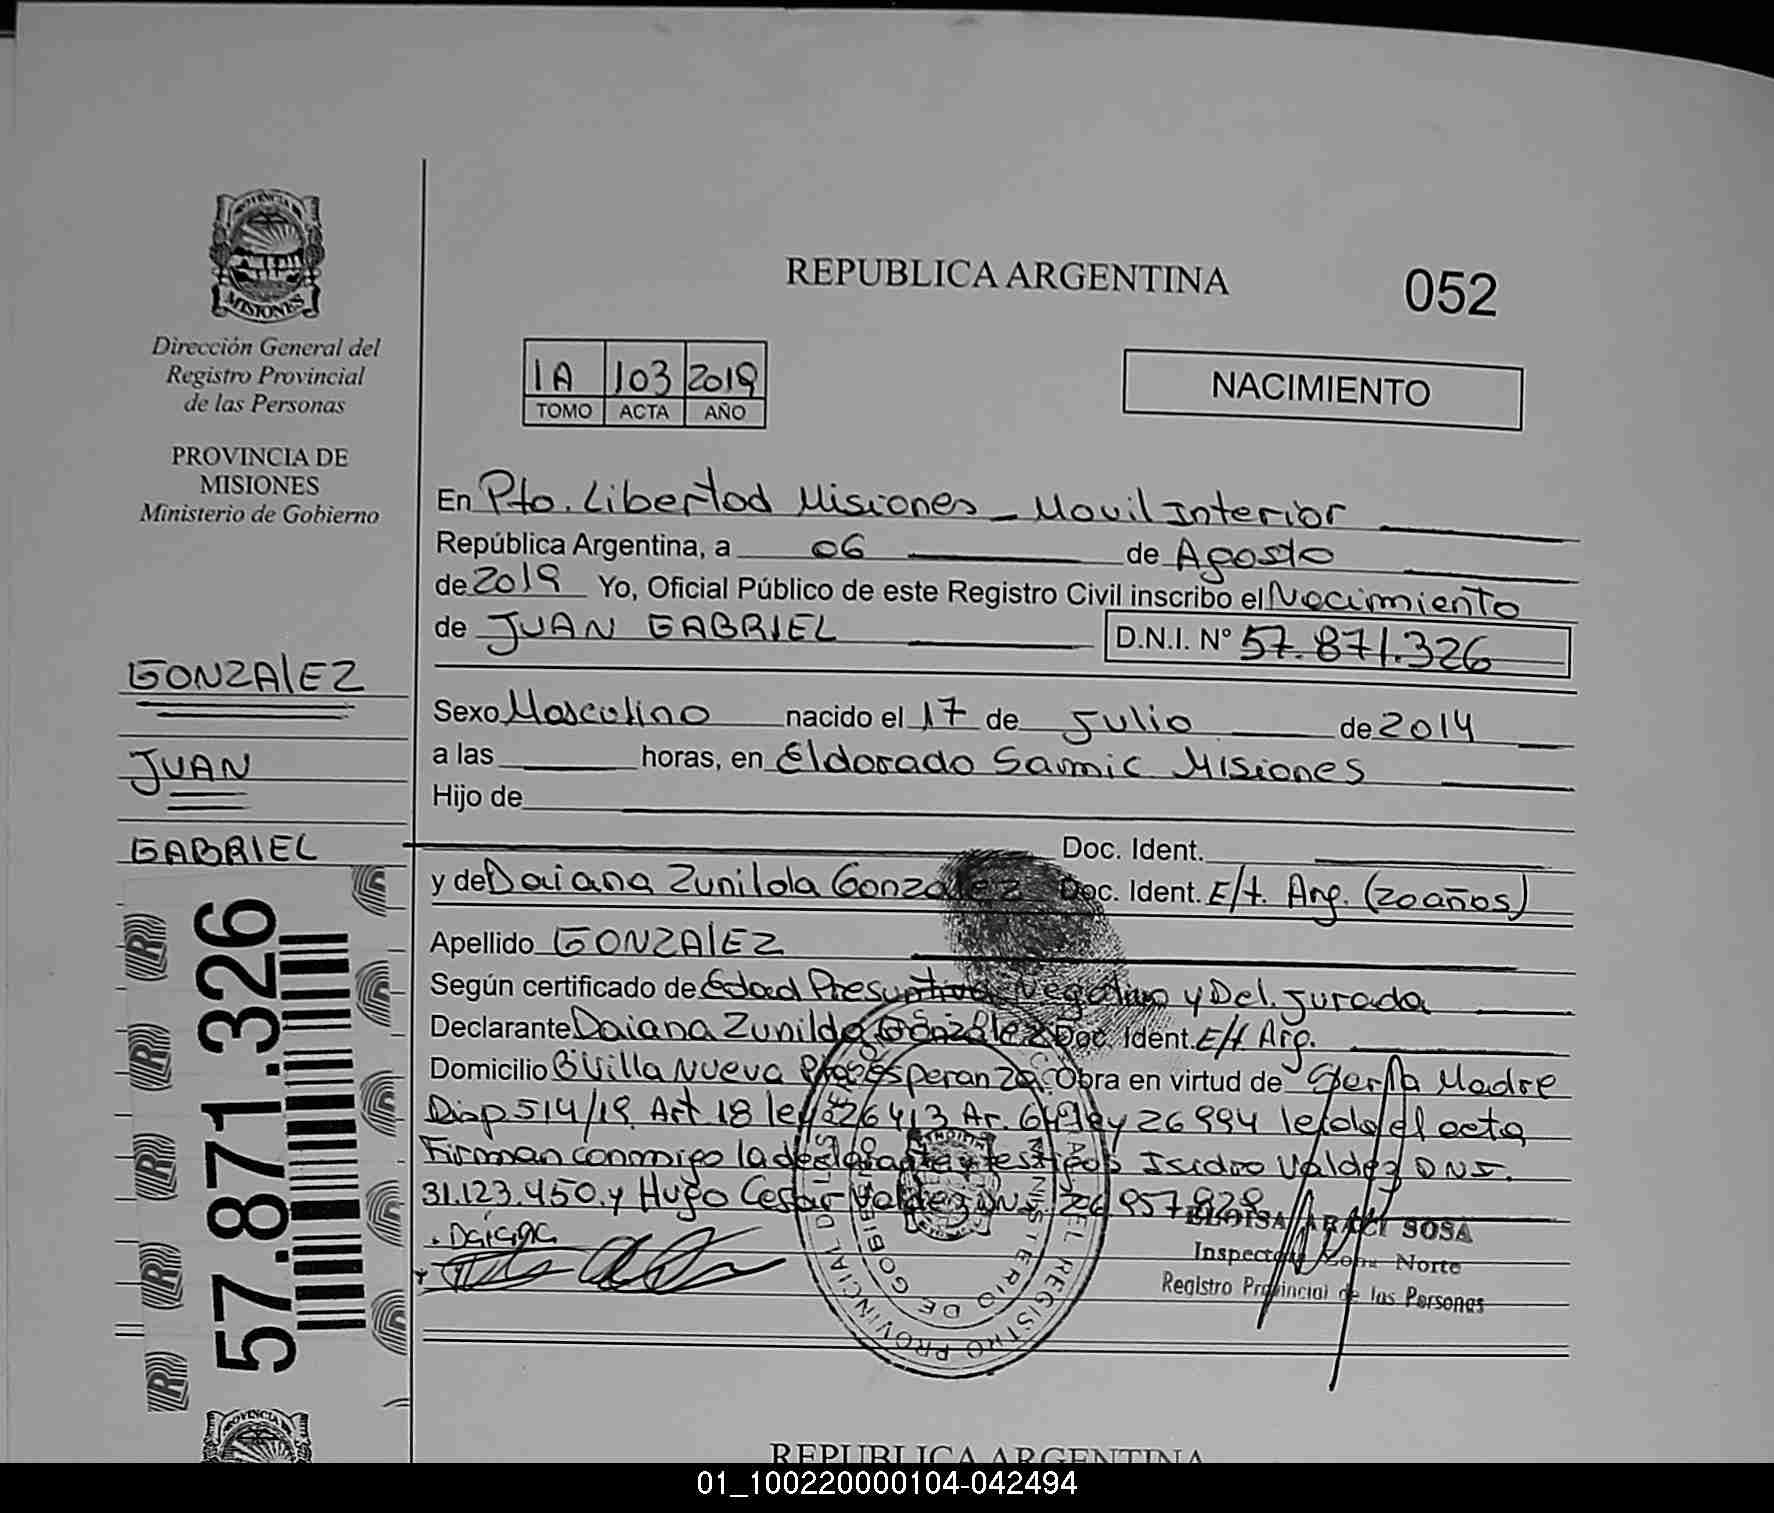 REPUBLICA ARGENTINA
052
PROVINCIA DE
MISIONES
Dirección General del
Registro Provincial
de las Personas
PROVINCIA DE
MISIONES
Ministerio de Gobierno
1A 103 2019
TOMO ACTA AÑO
NACIMIENTO
En Pto. Libertad Misiones - Movil Interior
República Argentina, a 06 de Agosto
de 2019 Yo, Oficial Público de este Registro Civil inscribo el Nacimiento
de JUAN GABRIEL D.N.I. N° 57.871.326
GONZALEZ
JUAN
GABRIEL
Sexo Masculino nacido el 17 de Julio de 2014
a las horas, en Eldorado Samic Misiones
Hijo de
Doc. Ident.
y de Daiana Zunilda Gonzalez Doc. Ident. E/t. Arg. (20 años)
Apellido GONZALEZ
Según certificado de Edad Presuntiva Negativo y Del. Jurada
Declarante Daiana Zunilda Gonzalez Doc. Ident. E/t Arg.
Domicilio B Villa Nueva Pto Esperanza Obra en virtud de ser la Madre
Disp 514/19. Art 18 ley 26413 Ar. 64 ley 26994 leida el acta
Firman conmigo la declarante y testigos Isidro Valdez DNI.
31.123.450. y Hugo Cesar Valdez DNI 26.957.828
Daiana
ELOISA ARACI SOSA
Inspectora Zona Norte
Registro Provincial de las Personas
REGISTRO PROVINCIAL DE LAS
MINISTERIO DE GOBIERNO
57.871.326
PROVINCIA DE
REPUBLICA ARGENTINA
01_100220000104-042494